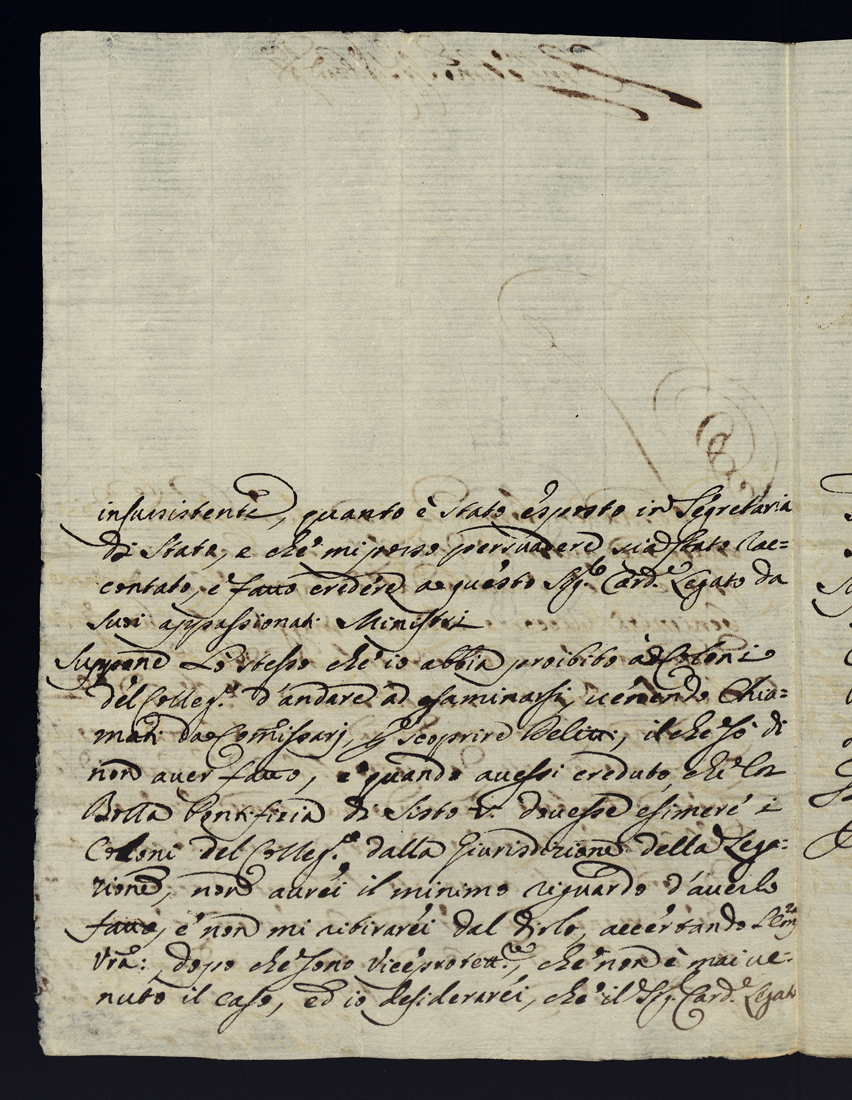 insussistente, quanto è stato esposto in Segretaria
di Stato, e che mi posso persuadere sia stato rac=
contato, e fatto credere a questo Sig.r Card.e Legato da
suoi appassionati Ministri
Suppone Lo stesso che io abbia proibito à Coloni
del Colleg.o d'andare ad esaminarsi, venendo Chia=
mati da Comissarj, p scoprire Delitti, il che sò di
non aver fatto, e quando avessi creduto, che La
Bolla Pontificia di Sisto V. dovesse esimere i
Coloni del Colleg.o dalla Giurisdizione della Lega=
zione, non aurei il minimo riguardo d'averlo
fatto, e non mi ritirarei dal dirlo, accertando l'Em.za
Vra:, dopo che sono Viceprotett.re, che non è mai ve=
nuto il caso, ed io desiderarei, che il Sig. Card.e Legato